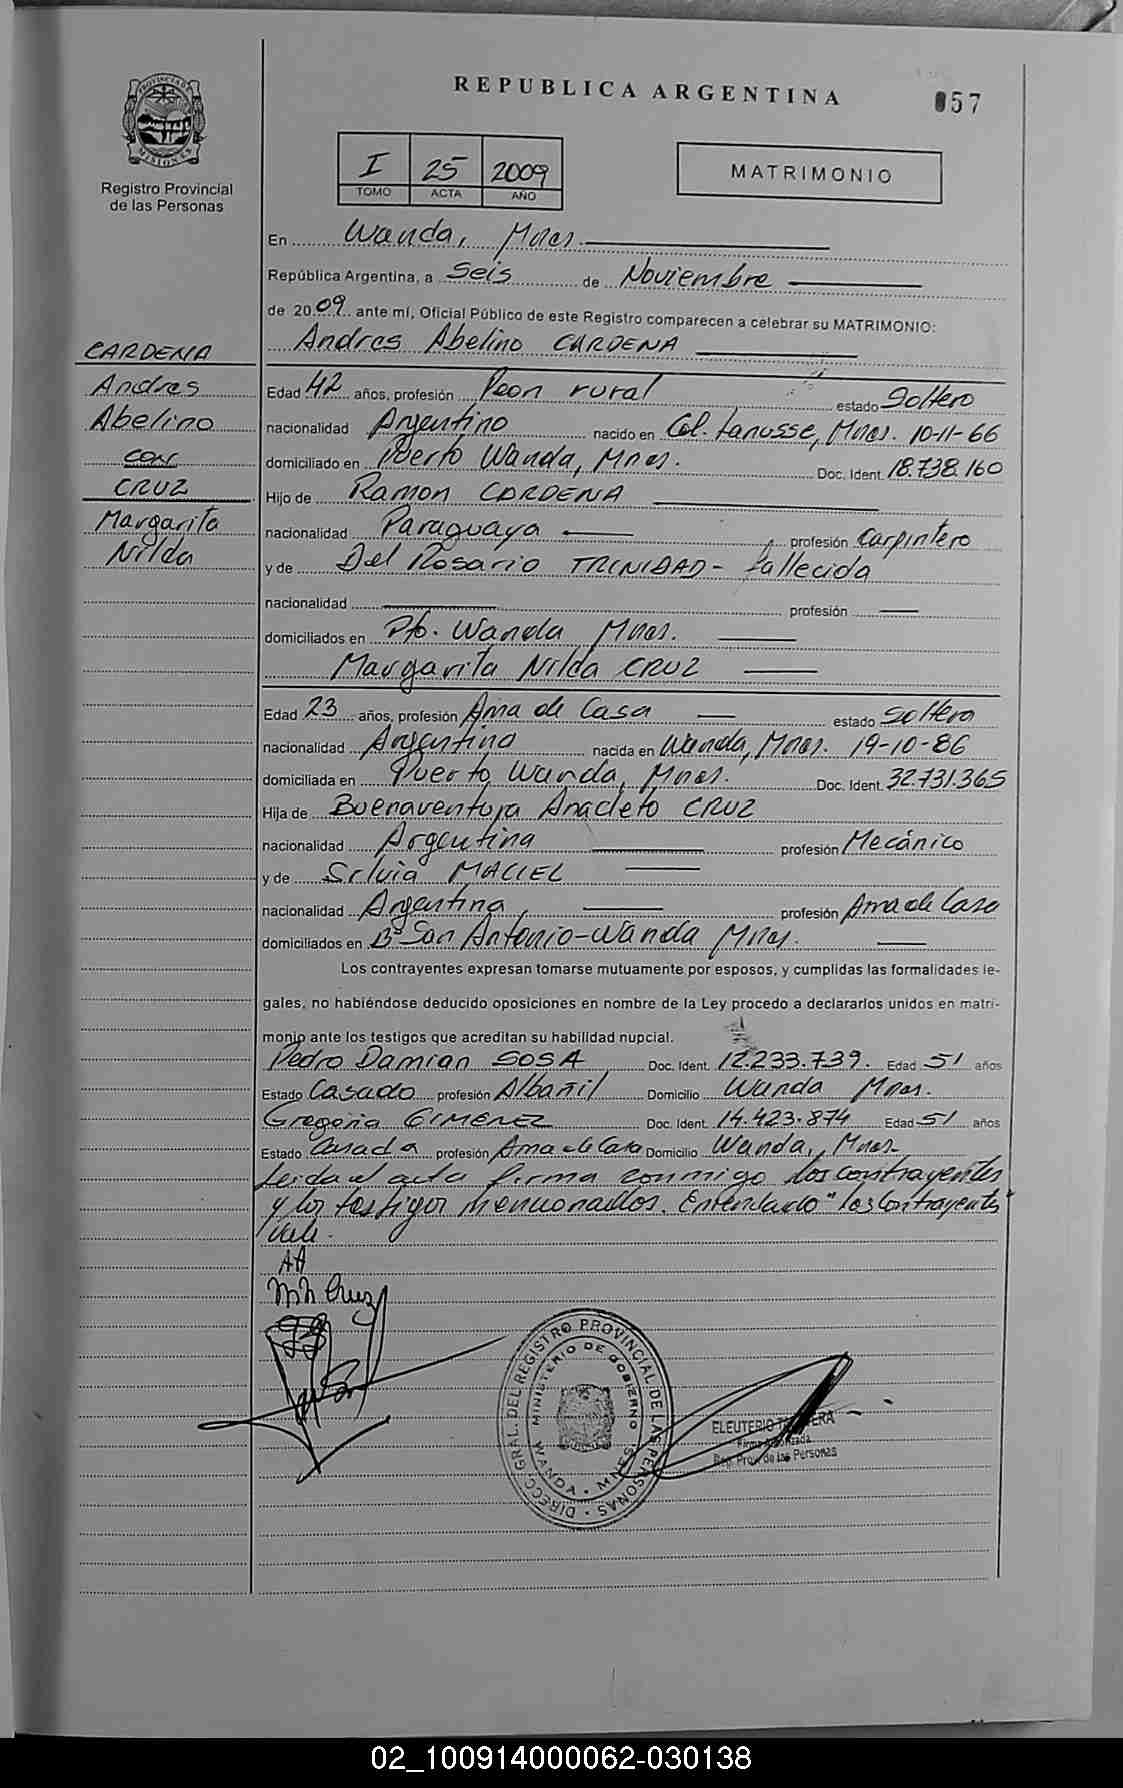 REPUBLICA ARGENTINA
057
PROVINCIA DE MISIONES
Registro Provincial
de las Personas
I 25 2009
TOMO ACTA AÑO
MATRIMONIO
En Wanda, Mnes.
República Argentina, a Seis de Noviembre
de 2009 ante mí, Oficial Público de este Registro comparecen a celebrar su MATRIMONIO:
Andres Abelino CARDENA
CARDENA
Andres
Abelino
con
CRUZ
Margarita
Nilda
Edad 42 años, profesión Peon rural estado Soltero
nacionalidad Argentino nacido en Col. Lanusse, Mnes. 10-11-66
domiciliado en Puerto Wanda, Mnes. Doc. Ident. 18.738.160
Hijo de Ramon CARDENA
nacionalidad Paraguaya profesión Carpintero
y de Del Rosario TRINIDAD - fallecida
nacionalidad profesión
domiciliados en Pto. Wanda Mnes.
Margarita Nilda CRUZ
Edad 23 años, profesión Ama de Casa estado Soltera
nacionalidad Argentina nacida en Wanda, Mnes. 19-10-86
domiciliada en Puerto Wanda, Mnes. Doc. Ident. 32.731.365
Hija de Buenaventura Anacleto CRUZ
nacionalidad Argentina profesión Mecánico
y de Silvia MACIEL
nacionalidad Argentina profesión Ama de Casa
domiciliados en Bº San Antonio-Wanda Mnes.
Los contrayentes expresan tomarse mutuamente por esposos, y cumplidas las formalidades le-
gales, no habiéndose deducido oposiciones en nombre de la Ley procedo a declararlos unidos en matri-
monio ante los testigos que acreditan su habilidad nupcial.
Pedro Damian SOSA Doc. Ident. 12.233.739. Edad 51 años
Estado Casado profesión Albañil Domicilio Wanda Mnes.
Gregoria GIMENEZ Doc. Ident. 14.423.874 Edad 51 años
Estado Casada profesión Ama de Casa Domicilio Wanda, Mnes.
Leida el acta firma conmigo los contrayentes
y los testigos mencionados. Enmendado "los contrayentes"
Vale.
AA
M N Cruz
DIRECC. GRAL. DEL REGISTRO PROVINCIAL DE LAS PERSONAS
MINISTERIO DE GOBIERNO
WANDA - MNES.
ELEUTERIO
Firma Autorizada
Reg. Prov. de las Personas
02_100914000062-030138